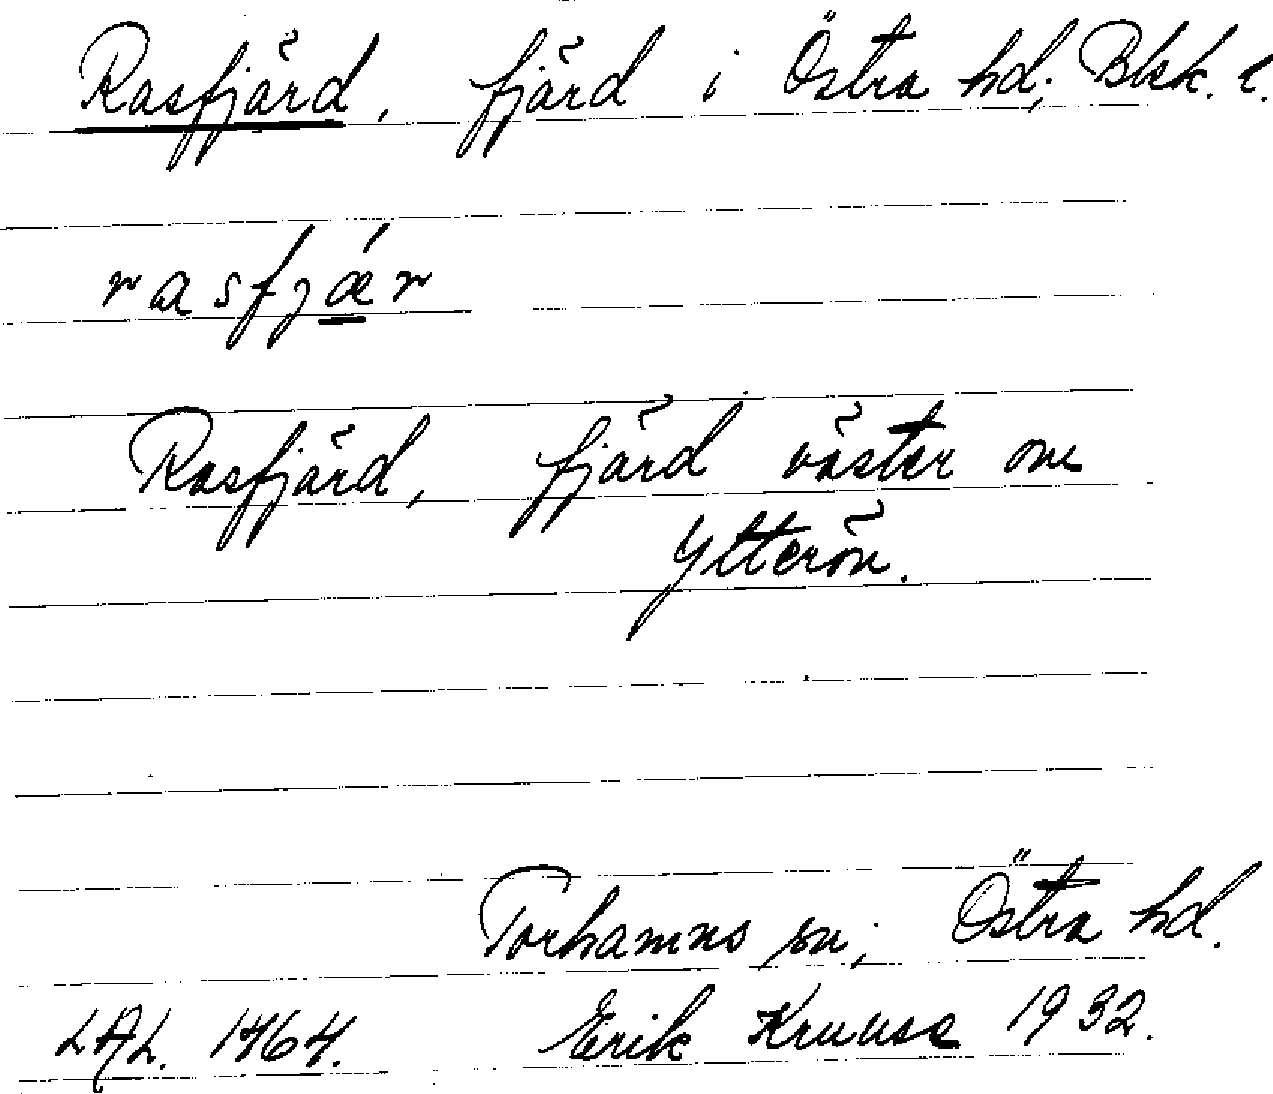 Rasfjärd, fjärd i Östra hd; Blek. l.
rasfjǽr
Rasfjärd, fjärd väster om
Ytterön.
Torhamns sn; Östra hd.
LAL. 1464. Erik Kruuse 1932.